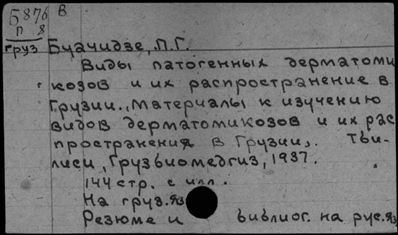 Б876 В
П 8
груз Буачидзе, П.Г.
Виды патогенных дерматоми
козов и их распространение в
Грузии., Материалы к изучению
видов дерматомикозов и их рас
пространения в Грузии,. Тби-
лиси, Грузбиомедгиз, 1937.
144 стр. с илл.
На груз.яз
Резюме и библиог. на рус.яз